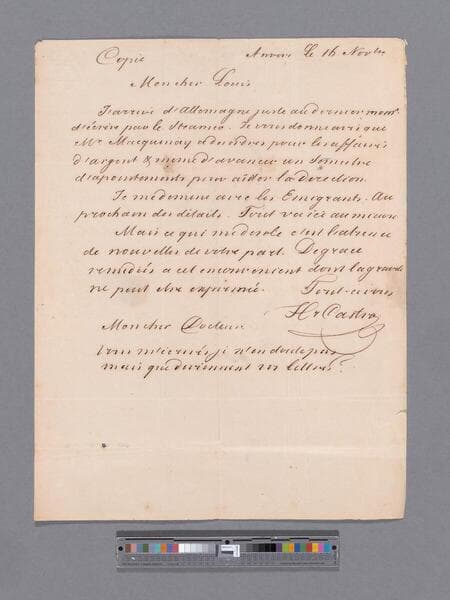 Copie
Anvers Le 16 Novbre
Mon cher Louis
J'arrive d'Allemagne juste au dernier momt
d'écrire par le Steamer. Je vous donne avis que
Mr Macquinay a des ordres pour les affaires
d'argent & même d'avancer un Semestre
d'apointements pour aider la Direction.
Je me démène avec les Emigrants. Au
prochain des détails. Tout va ici au mieux
Mais ce qui me désole c'est l'absence
de nouvelles de votre part. De grace
remédiés a cet inconvenient dont la gravité
ne peut etre exprimée. Tout a vous
Hy Castro
Mon cher Docteur
Vous m'écrivés, je n'en doute pas
mais que deviennent vos lettres?